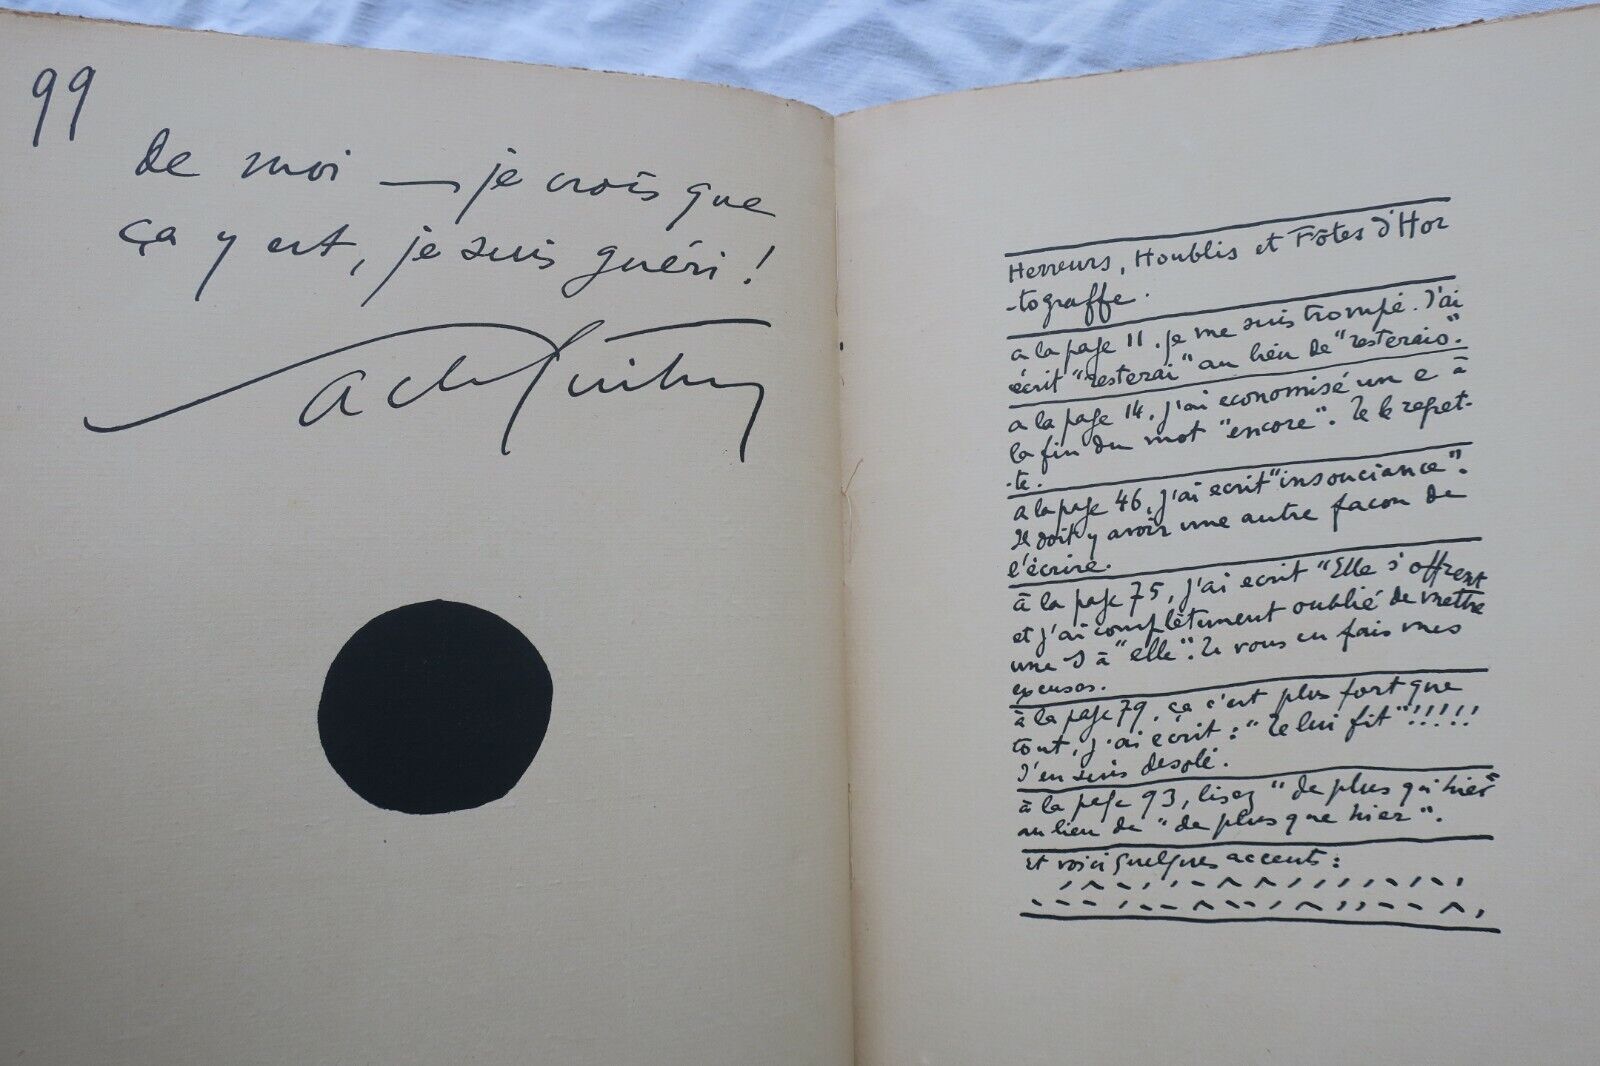 99
de moi — je crois que
ça y est, je suis guéri !
Herreurs, Houblis et Fôtes d'Hor
-tograffe.
a la page 11. je me suis trompé. J'ai
écrit "resterai" au lieu de "resterais".
a la page 14. j'ai economisé un e à
la fin du mot "encore". Je le regret-
-te.
a la page 46, j'ai ecrit "insouciance".
Il doit y avoir une autre facon de
l'écrire.
à la page 75, j'ai ecrit "Elle s'offrent
et j'ai complètement oublié de mettre
une S à "elle". Je vous en fais mes
excuses.
à la page 79, ça c'est plus fort que
tout, j'ai écrit : "Je lui fit"!!!!!
J'en suis desolé.
à la page 93, lisez "de plus qu'hier"
au lieu de "de plus que hier".
Et voici quelques accents :